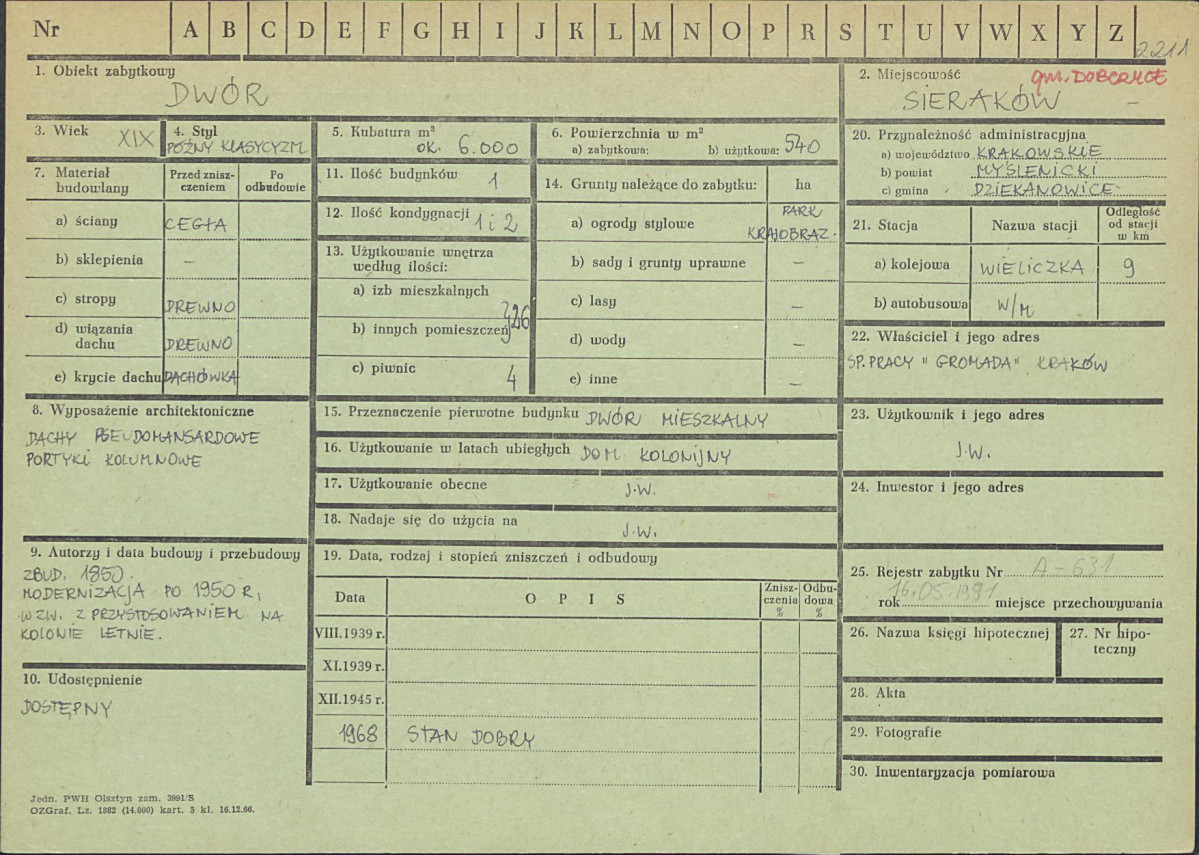 Nr A B C D E F G H I J K L M N O P R S T U V W X Y Z
2211
1. Obiekt zabytkowy
DWÓR
2. Miejscowość
gm. DOBCZYCE
SIERAKÓW
3. Wiek XIX
4. Styl
PÓŹNY KLASYCYZM
5. Kubatura m³
OK. 6.000
6. Powierzchnia w m²
a) zabytkowa: b) użytkowa: 540
7. Materiał budowlany
Przed zniszczeniem
Po odbudowie
a) ściany CEGŁA
b) sklepienia —
c) stropy DREWNO
d) wiązania dachu DREWNO
e) krycie dachu DACHÓWKA
11. Ilość budynków 1
12. Ilość kondygnacji 1 i 2
13. Użytkowanie wnętrza według ilości:
a) izb mieszkalnych
b) innych pomieszczeń 26
c) piwnic 4
14. Grunty należące do zabytku: ha
a) ogrody stylowe PARK KRAJOBRAZ.
b) sady i grunty uprawne —
c) lasy —
d) wody —
e) inne —
20. Przynależność administracyjna
a) województwo KRAKOWSKIE
b) powiat MYŚLENICKI
c) gmina DZIEKANOWICE
21. Stacja
Nazwa stacji
Odległość od stacji w km
a) kolejowa WIELICZKA 9
b) autobusowa W/M
22. Właściciel i jego adres
SP. PRACY "GROMADA" KRAKÓW
8. Wyposażenie architektoniczne
DACHY PSEUDOMANSARDOWE
PORTYKI KOLUMNOWE
15. Przeznaczenie pierwotne budynku DWÓR MIESZKALNY
16. Użytkowanie w latach ubiegłych DOM KOLONIJNY
17. Użytkowanie obecne J.W.
18. Nadaje się do użycia na J.W.
23. Użytkownik i jego adres
J.W.
24. Inwestor i jego adres
9. Autorzy i data budowy i przebudowy
ZBUD. 1850.
MODERNIZACJA PO 1950 R,
W ZW. Z PRZYSTOSOWANIEM NA
KOLONIE LETNIE.
10. Udostępnienie
DOSTĘPNY
19. Data, rodzaj i stopień zniszczeń i odbudowy
Data
OPIS
Zniszczenia %
Odbudowa %
VIII.1939 r.
XI.1939 r.
XII.1945 r.
1968 STAN DOBRY
25. Rejestr zabytku Nr A-631
rok 16.05.1991 miejsce przechowywania
26. Nazwa księgi hipotecznej
27. Nr hipoteczny
28. Akta
29. Fotografie
30. Inwentaryzacja pomiarowa
Jedn. PWH Olsztyn zam. 3991/S
OZGraf. Lz. 1882 (14.000) kart. 5 kl. 16.12.66.